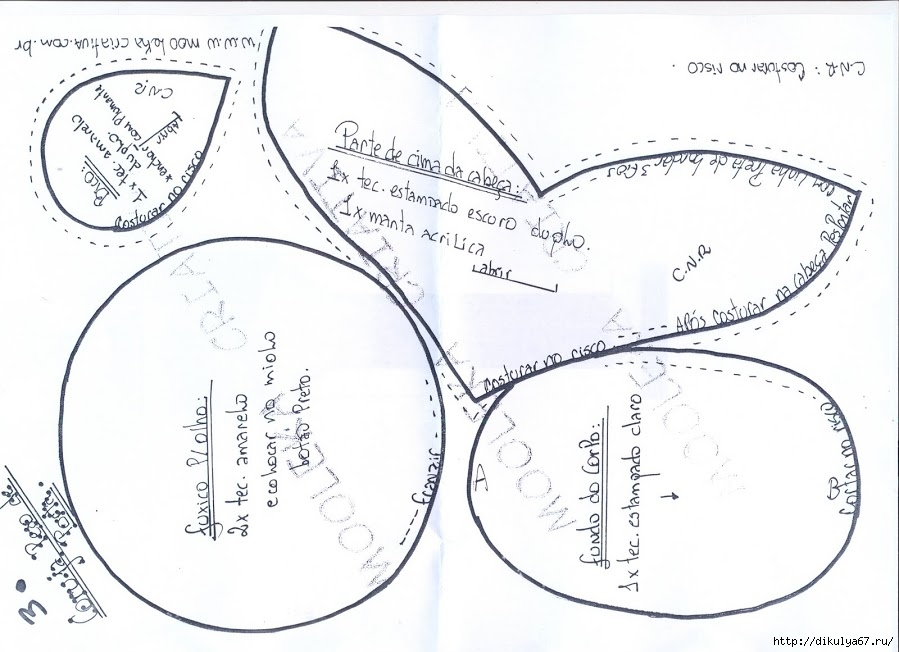 www.moolekacriativa.com.br
C.N.R: Costurar no risco.
Bico:
1x tec. amarelo
duplo.
encher com plumante
Labrir
C.N.R
Costurar no risco
Parte de cima da cabeça:
1x tec. estampado escuro duplo.
1x manta acrílica
Labrir
C.N.R
com linha Preta de bordar 3 fios
Após costurar na cabeça Pespontar
Costurar no risco
fuxico P/olho:
2x tec. amarelo
e colocar no miolo
botão Preto.
Franzir
fundo do corpo:
1x tec. estampado claro
A
B
Cortar no risco
3. Peso de
MOOLEKA
CRIATIVA
MOOLEKA
CRIATIVA
MOOLEKA
http://dikulya67.ru/